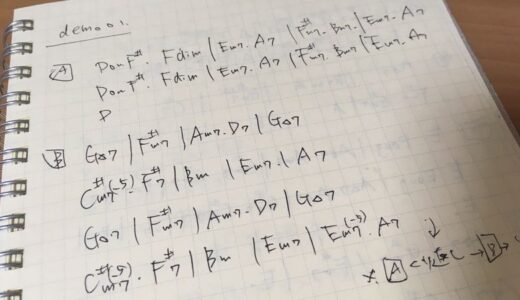 demo01.
A DonF#. Fdim | Em7. A7 | F#m7. Bm7 | Em7. A7
DonF#. Fdim | Em7. A7 | F#m7. Bm7 | Em7. A7
D
B G△7 | F#m7 | Am7. D7 | G△7
C#m7(-5). F#7 | Bm | Em7. | A7
G△7 | F#m7 | Am7. D7 | G△7
C#m7(-5). F#7 | Bm | Em7 | Em7(-5). A7
※ A くり返し → B →